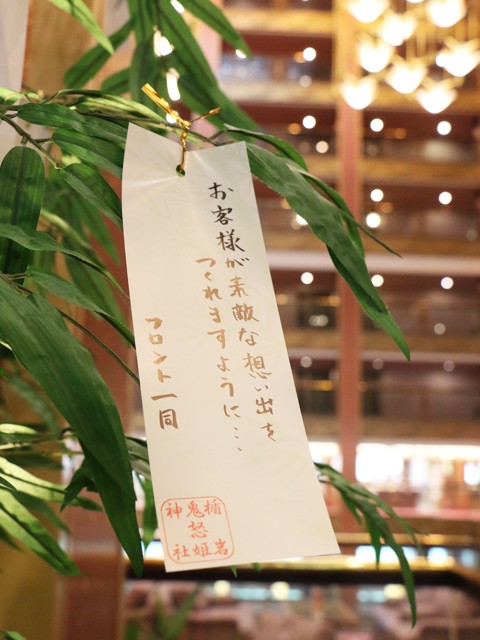 お客様が素敵な想い出を
つくれますように…
フロント一同
楯岩
鬼怒姫
神社